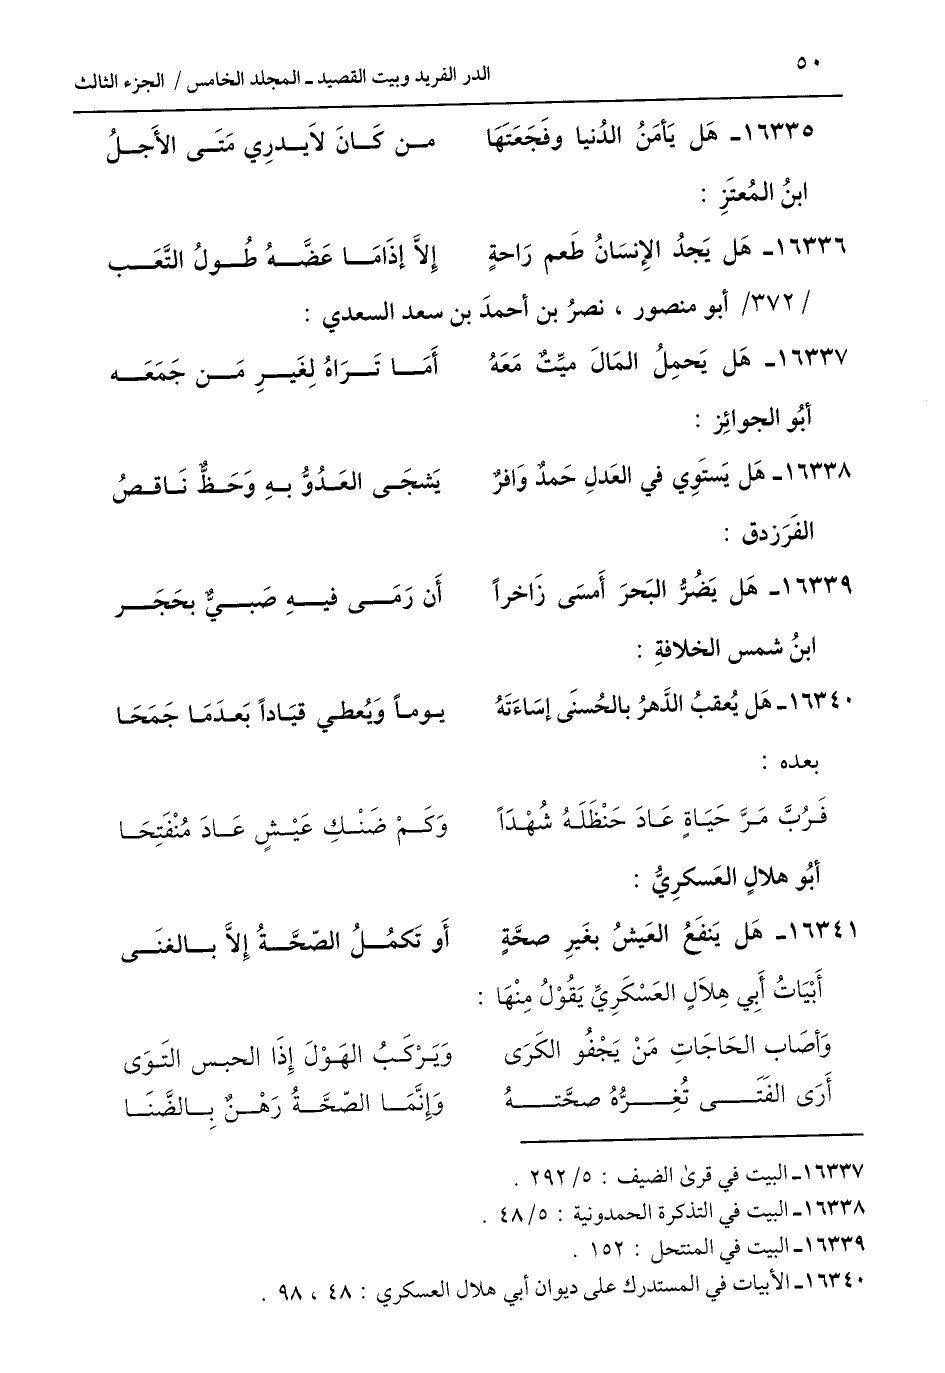 ٥٠
الدر الفريد وبيت القصيد ـ المجلد الخامس / الجزء الثالث
١٦٣٣٥ـ هَل يَأمَنُ الدُنيا وفَجَعَتَهَا من كَانَ لاَيدرِي مَتَى الأَجلُ
ابنُ المُعتَزِ :
١٦٣٣٦ـ هَل يَجدُ الإِنسَانُ طَعم رَاحةٍ إلاَّ إذَامَا عَضَّهُ طُولُ التَّعَب
/٣٧٢/ أبو منصور ، نصرُ بن أحمدَ بن سعد السعدي :
١٦٣٣٧ـ هَل يَحمِلُ المَالَ ميِّتٌ مَعَهُ أَمَا تَرَاهُ لِغَيرِ مَن جَمَعَه
أبُو الجوائِز :
١٦٣٣٨ـ هَل يَستَوِي في العَدلِ حَمدٌ وَافرٌ يَشجَى العَدُوُّ بهِ وَحَظٌّ نَاقصُ
الفَرَزدق :
١٦٣٣٩ـ هَل يَضُرُّ البَحرَ أَمسَى زَاخراً أَن رَمَى فيهِ صَبيٌّ بحَجَر
ابنُ شمس الخلافةِ :
١٦٣٤٠ـ هَل يُعقبُ الدَّهرُ بالحُسنَى إسَاءَتَهُ يوماً وَيُعطي قيَاداً بَعدَمَا جَمَحَا
بعده :
فَرُبَّ مَرَّ حَيَاةٍ عَادَ حَنْظَلَهُ شُهْدَاً وَكَمْ ضَنْكِ عَيْشٍ عَادَ مُنْفَتِحَا
أبُو هلالٍ العَسكرِيُّ :
١٦٣٤١ـ هَل يَنفَعُ العَيشُ بغَيرِ صحَّةٍ أَو تَكمُلُ الصّحَّةُ إلاَّ بالغنَى
أَبْيَاتُ أَبِي هِلاَلٍ العَسْكَرِيِّ يَقُوْلُ مِنْهَا :
وَأصَاب الحَاجَاتِ مَنْ يَجْفُو الكَرَى وَيَرْكَبُ الهَوْلَ إِذَا الحبس التَوَى
أَرَى الفَتَى تُغِرُّهُ صحَّتهُ وَإِنَّمَا الصّحَّةُ رَهْنٌ بِالضَّنَا
١٦٣٣٧ـ البيت في قرى الضيف : ٥/ ٢٩٢ .
١٦٣٣٨ـ البيت في التذكرة الحمدونية : ٥/ ٤٨ .
١٦٣٣٩ـ البيت في المنتحل : ١٥٢ .
١٦٣٤٠ـ الأبيات في المستدرك على ديوان أبي هلال العسكري : ٤٨ ، ٩٨ .